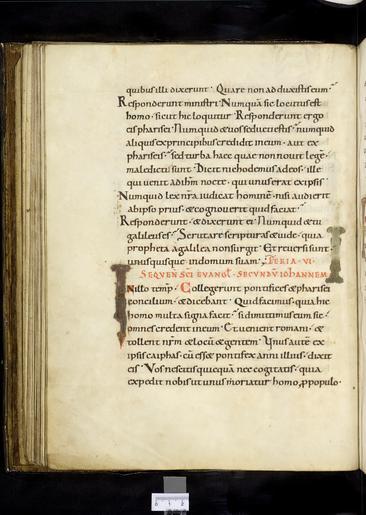 quibus illi dixerunt · Quare non adduxistis eum ·
Responderunt ministri · Numquā sic locutus est
homo · sicut hic loquitur · Responderunt ergo
eis pharisei · Numquid & vos seducti estis · numquid
aliquis ex principibus credidit in eum · aut ex
phariseis · sed turba haec quae non novit legē ·
maledicti sunt · Dicit nichodemus ad eos · ille
qui venit ad ihm nocte · qui unus erat ex ipsis
Numquid lex nrā iudicat hominē · nisi audierit
ab ipso prius · & cognoverit quid faciat
Responderunt · & dixerunt ei · Numquid & tu
galileus es · Scrutare scripturas & vide · quia
propheta a galilea non surgit · Et reversi sunt ·
unusquisque in domum suam · FERIA · VI ·
SEQUEN SCI EVANGL · SECUNDŪ IOHANNEM
IN illo temp · Collegerunt pontifices & pharisei
concilium · & dicebant · Quid facimus · quia hic
homo multa signa facit · si dimittimus eum sic ·
omnes credent in eum · Et venient romani · &
tollent nrm & locū & gentem · Unus autē ex
ipsis caiphas · cū esset pontifex anni illius · dixit
eis · Vos nescitis quicquā nec cogitatis · quia
expedit nobis ut unus moriatur homo p populo ·